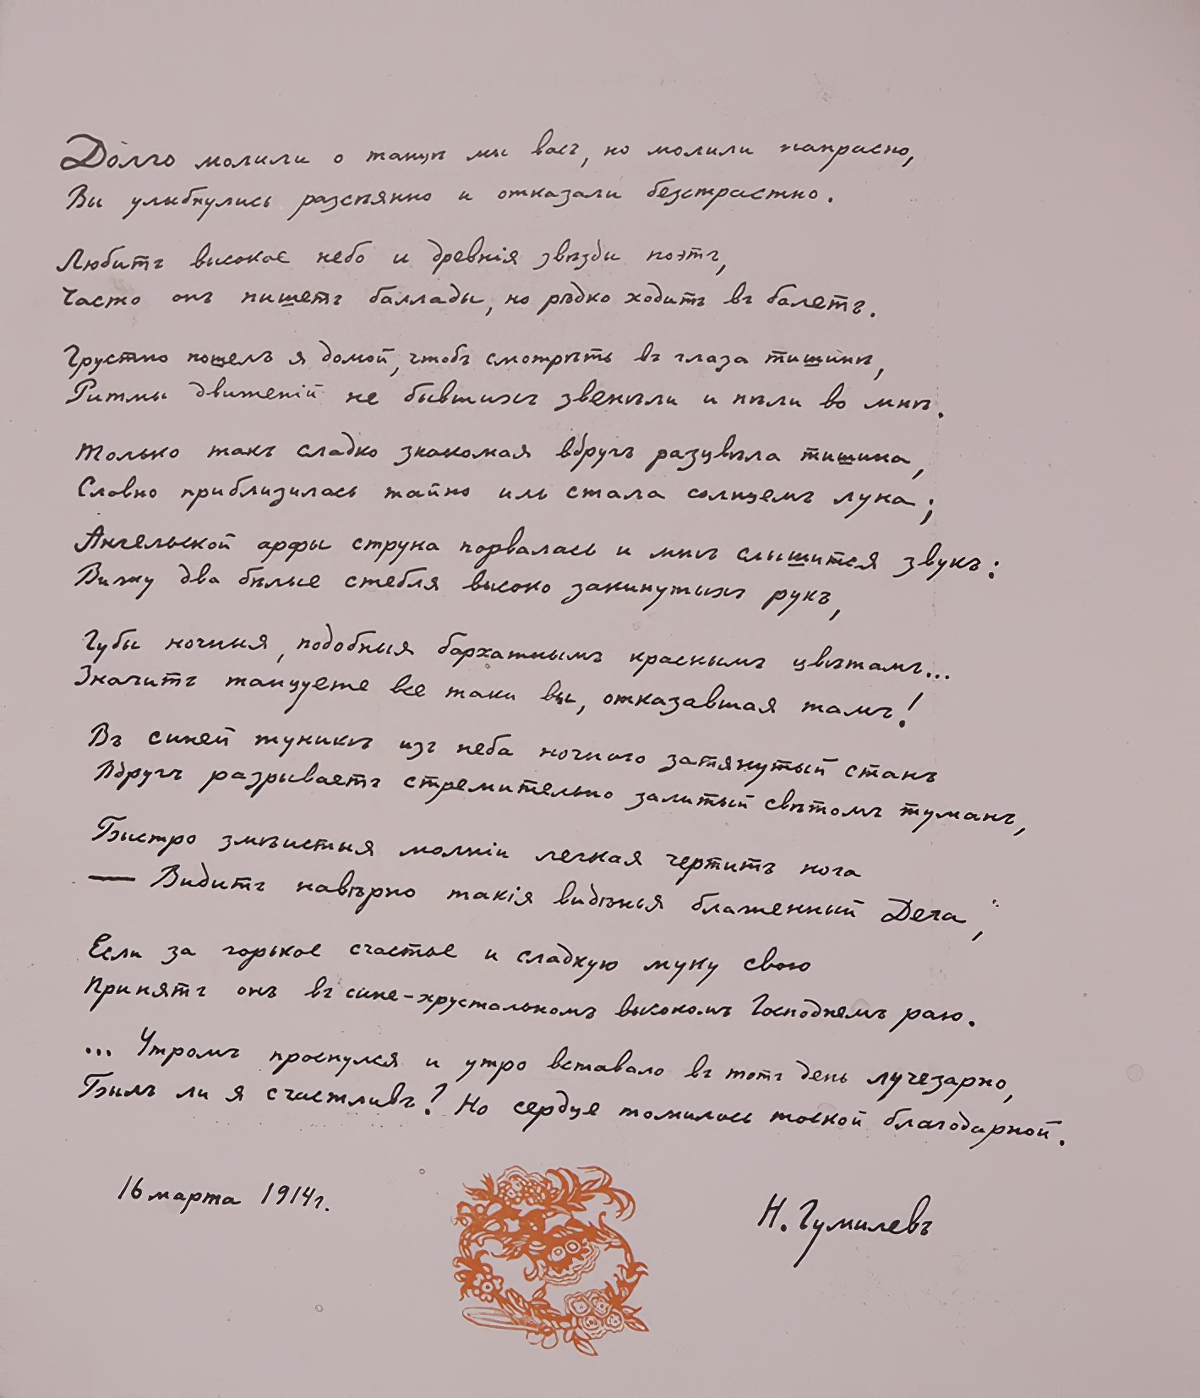 Долго молили о танцѣ мы васъ, но молили напрасно,
Вы улыбнулись разсѣянно и отказали безстрастно.
Любитъ высокое небо и древнія звѣзды поэтъ,
Часто онъ пишетъ баллады, но рѣдко ходитъ въ балетъ.
Грустно пошелъ я домой, чтобъ смотрѣть въ глаза тишинѣ,
Ритмы движеній не бывшихъ звенѣли и пѣли во мнѣ.
Только такъ сладко знакомая вдругъ разцвѣла тишина,
Словно приблизилась тайно иль стала солнцемъ луна;
Ангельской арфы струна порвалась и мнѣ слышится звукъ:
Вижу два бѣлые стебля высоко закинутыхъ рукъ,
Губы ночныя, подобныя бархатнымъ краснымъ цвѣтамъ...
Значитъ танцуете все таки вы, отказавшая тамъ!
Въ синей туникѣ изъ неба ночного затянутый станъ
Вдругъ разрываетъ стремительно залитый свѣтомъ туманъ,
Быстро змѣистыя молніи легкая чертитъ нога
— Видитъ навѣрно такія видѣнья блаженный Дега,
Если за горькое счастье и сладкую муку свою
Принятъ онъ въ сине-хрустальномъ высокомъ Господнемъ раю.
... Утромъ проснулся и утро вставало въ тотъ день лучезарно,
Былъ ли я счастливъ? Но сердце томилось тоской благодарной.
16 марта 1914г.
Н. Гумилевъ